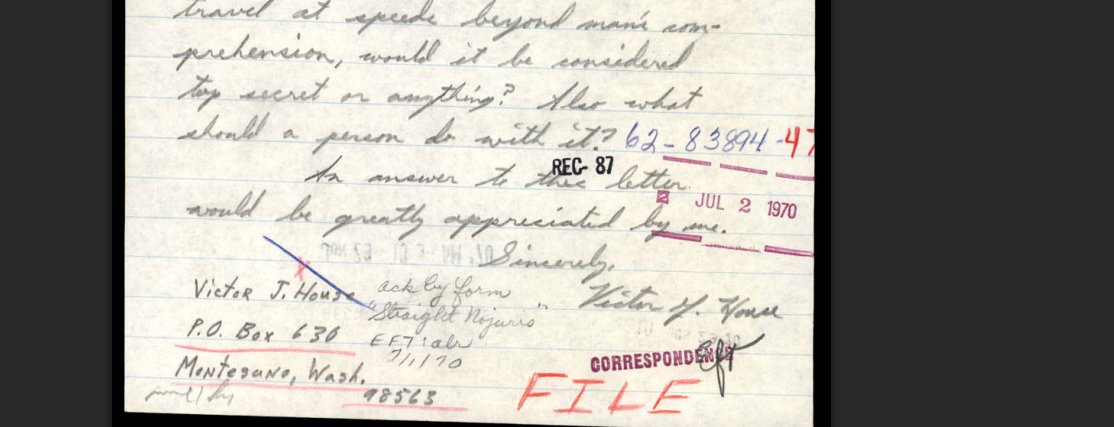 travel at speeds beyond man's com-
prehension, would it be considered
top secret or anything? Also what
should a person do with it? 62-83894-47
REC- 87
An answer to this letter
JUL 2 1970
would be greatly appreciated by me.
Sincerely,
Victor J. House
Victor J. House
P.O. Box 630
Montesano, Wash.
98563
ack by form
"Straight
EFT:
7/1/70
CORRESPONDENCE
FILE